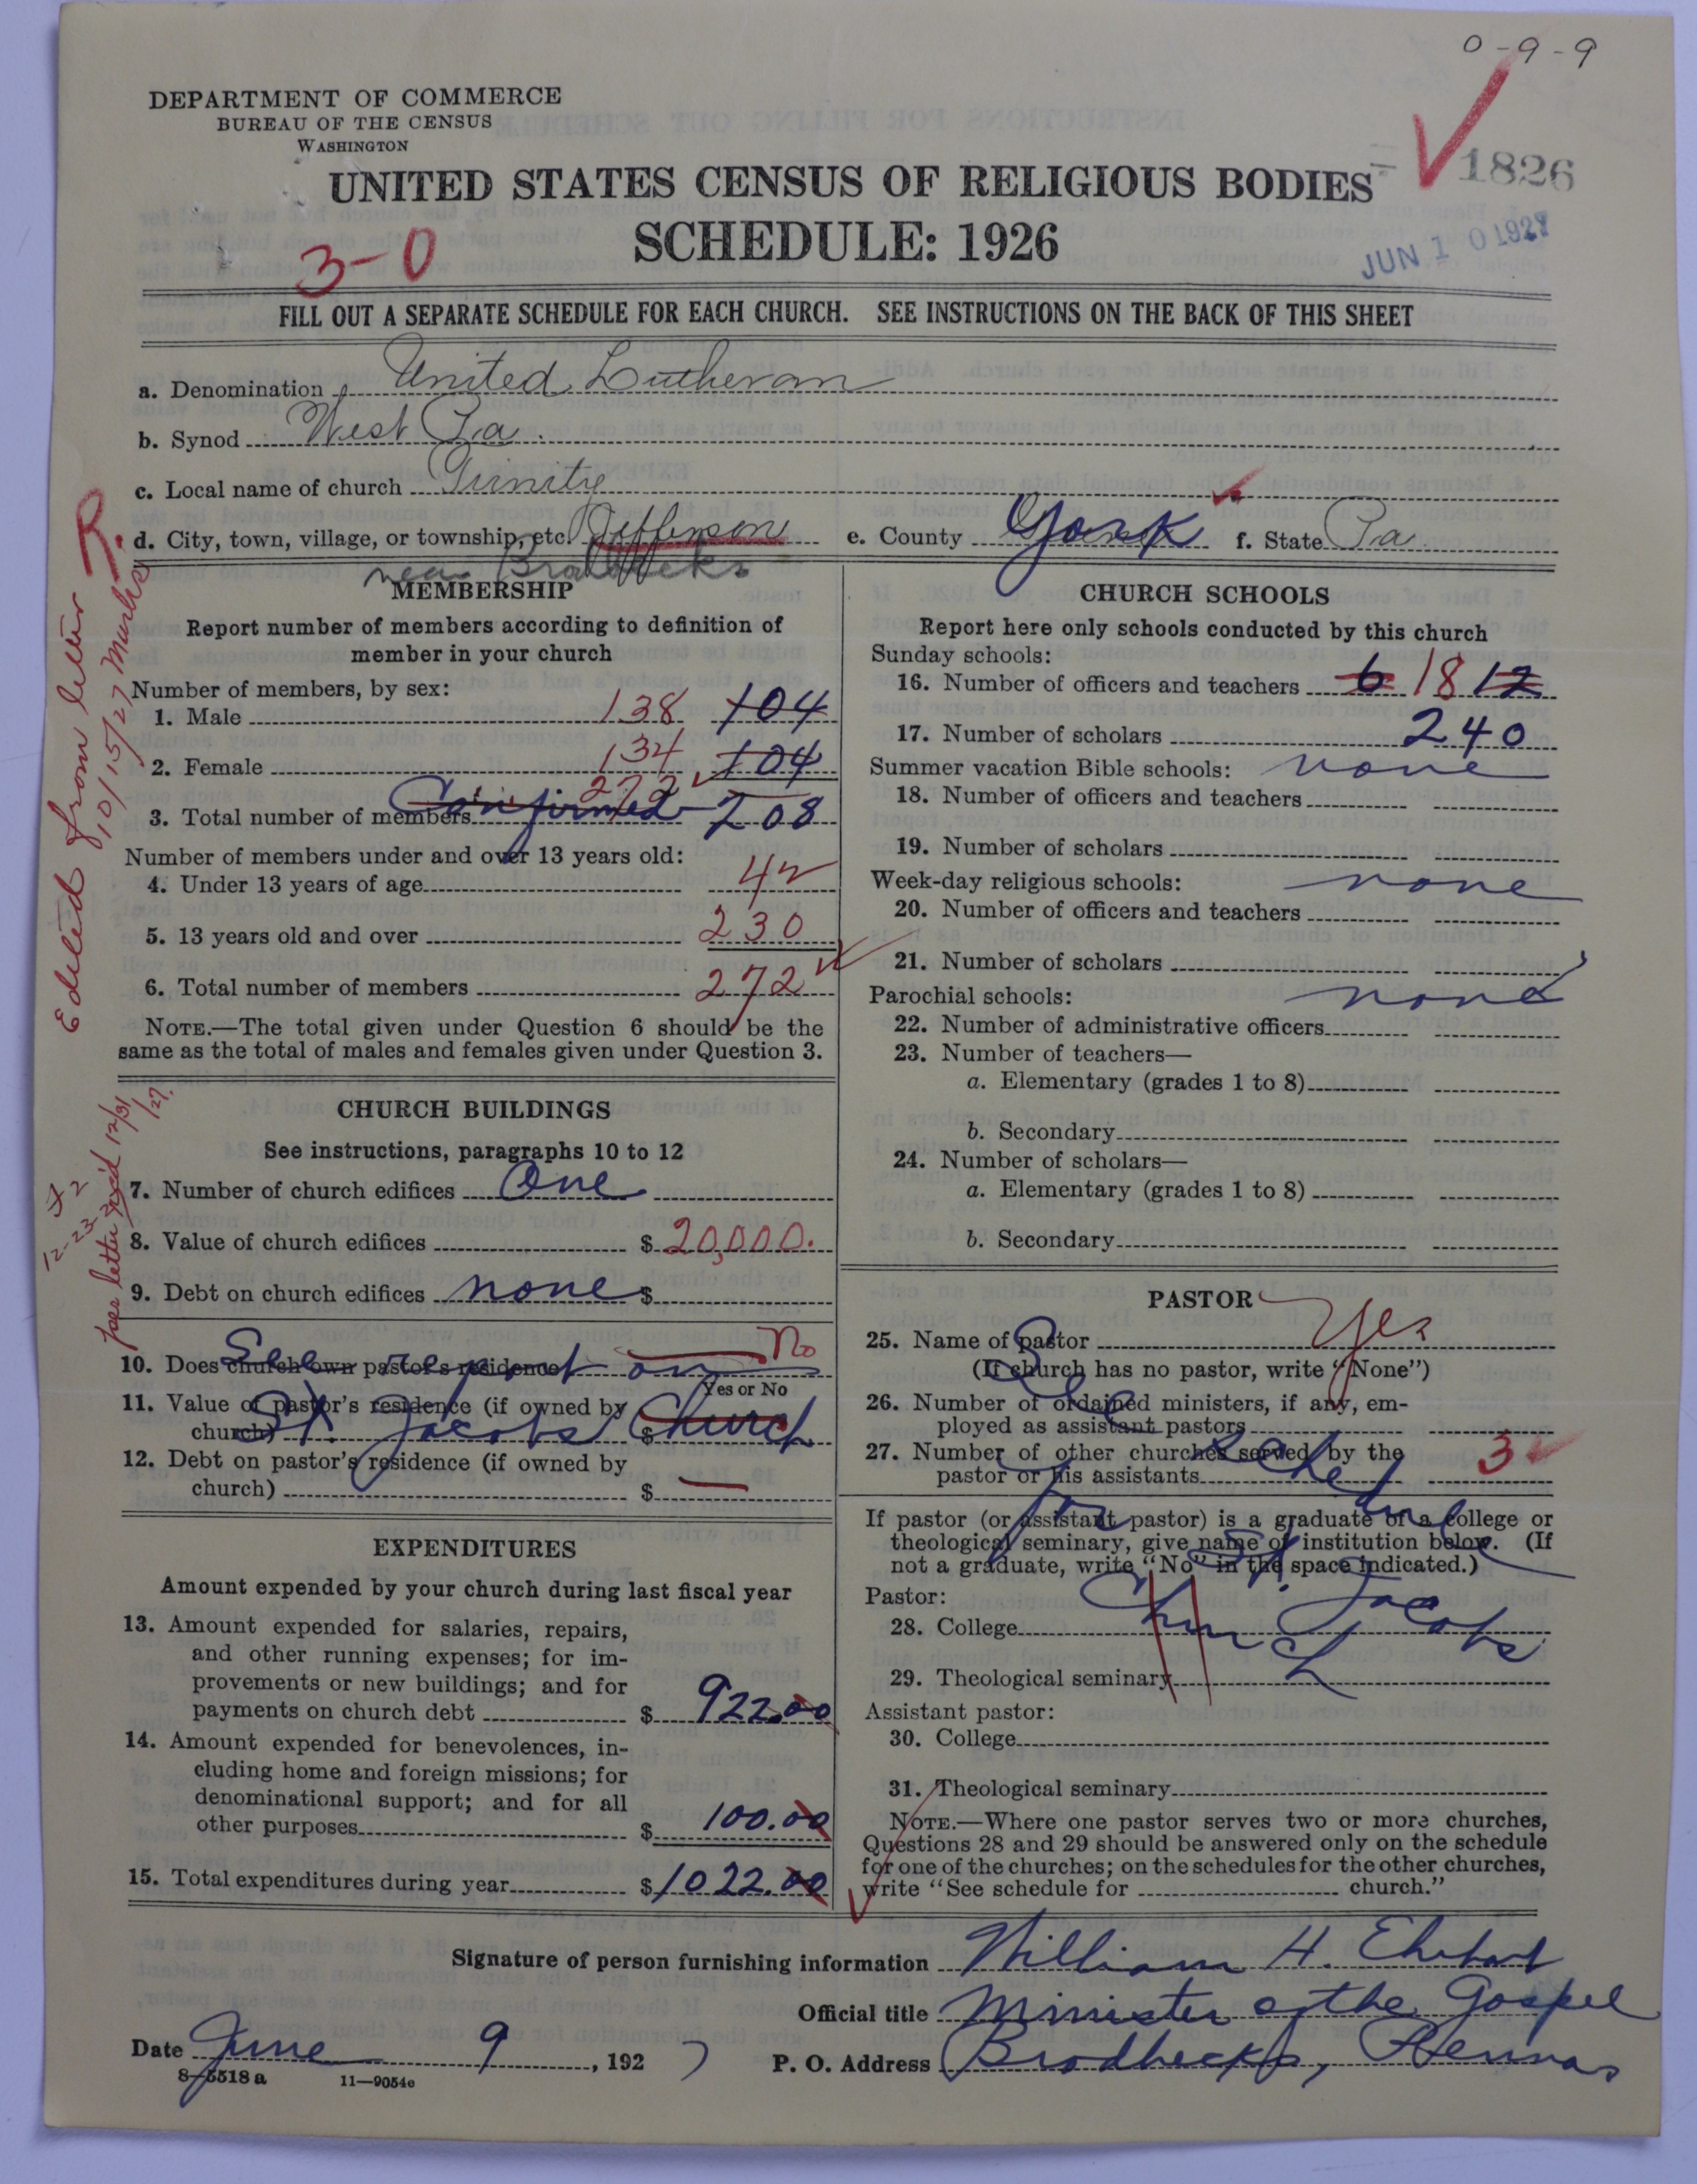 0-9-9
DEPARTMENT OF COMMERCE
BUREAU OF THE CENSUS
WASHINGTON
1826
UNITED STATES CENSUS OF RELIGIOUS BODIES
SCHEDULE: 1926
JUN 10 1927
3-0
FILL OUT A SEPARATE SCHEDULE FOR EACH CHURCH. SEE INSTRUCTIONS ON THE BACK OF THIS SHEET
a. Denomination United Lutheran
b. Synod West Pa.
c. Local name of church Trinity
d. City, town, village, or township, etc. Jefferson e. County York f. State Pa
near Brodbecks
Edited from letter
10/15/27 Marks
R.
MEMBERSHIP
Report number of members according to definition of
member in your church
Number of members, by sex:
1. Male 138 104
2. Female 134 104
272
3. Total number of members Confirmed 208
Number of members under and over 13 years old:
4. Under 13 years of age 42
5. 13 years old and over 230
6. Total number of members 272
NOTE.—The total given under Question 6 should be the
same as the total of males and females given under Question 3.
CHURCH BUILDINGS
See instructions, paragraphs 10 to 12
7. Number of church edifices One
8. Value of church edifices $ 20,000.
9. Debt on church edifices none $
per letter rec'd 12/31/27.
12-23
10. Does church own pastor's residence No
Yes or No
See report on
11. Value of pastor's residence (if owned by
church) $
St. Jacobs Church
12. Debt on pastor's residence (if owned by
church) $ —
EXPENDITURES
Amount expended by your church during last fiscal year
13. Amount expended for salaries, repairs,
and other running expenses; for im-
provements or new buildings; and for
payments on church debt $ 922.00
14. Amount expended for benevolences, in-
cluding home and foreign missions; for
denominational support; and for all
other purposes $ 100.00
15. Total expenditures during year $ 1022.00
CHURCH SCHOOLS
Report here only schools conducted by this church
Sunday schools:
16. Number of officers and teachers 6 18 12
17. Number of scholars 240
Summer vacation Bible schools: none
18. Number of officers and teachers
19. Number of scholars
Week-day religious schools: none
20. Number of officers and teachers
21. Number of scholars
Parochial schools: none
22. Number of administrative officers
23. Number of teachers—
a. Elementary (grades 1 to 8)
b. Secondary
24. Number of scholars—
a. Elementary (grades 1 to 8)
b. Secondary
PASTOR
25. Name of pastor Yes
(If church has no pastor, write "None")
26. Number of ordained ministers, if any, em-
ployed as assistant pastors
27. Number of other churches served by the
pastor or his assistants 3
See schedule
for St. Jacobs
Church
If pastor (or assistant pastor) is a graduate of a college or
theological seminary, give name of institution below. (If
not a graduate, write "No" in the space indicated.)
Pastor:
28. College
29. Theological seminary
Assistant pastor:
30. College
31. Theological seminary
NOTE.—Where one pastor serves two or more churches,
Questions 28 and 29 should be answered only on the schedule
for one of the churches; on the schedules for the other churches,
write "See schedule for church."
Signature of person furnishing information William H. Ehrhart
Official title Minister of the Gospel
Date June 9, 1927 P. O. Address Brodbecks, Penna
8—5518 a 11—9054c